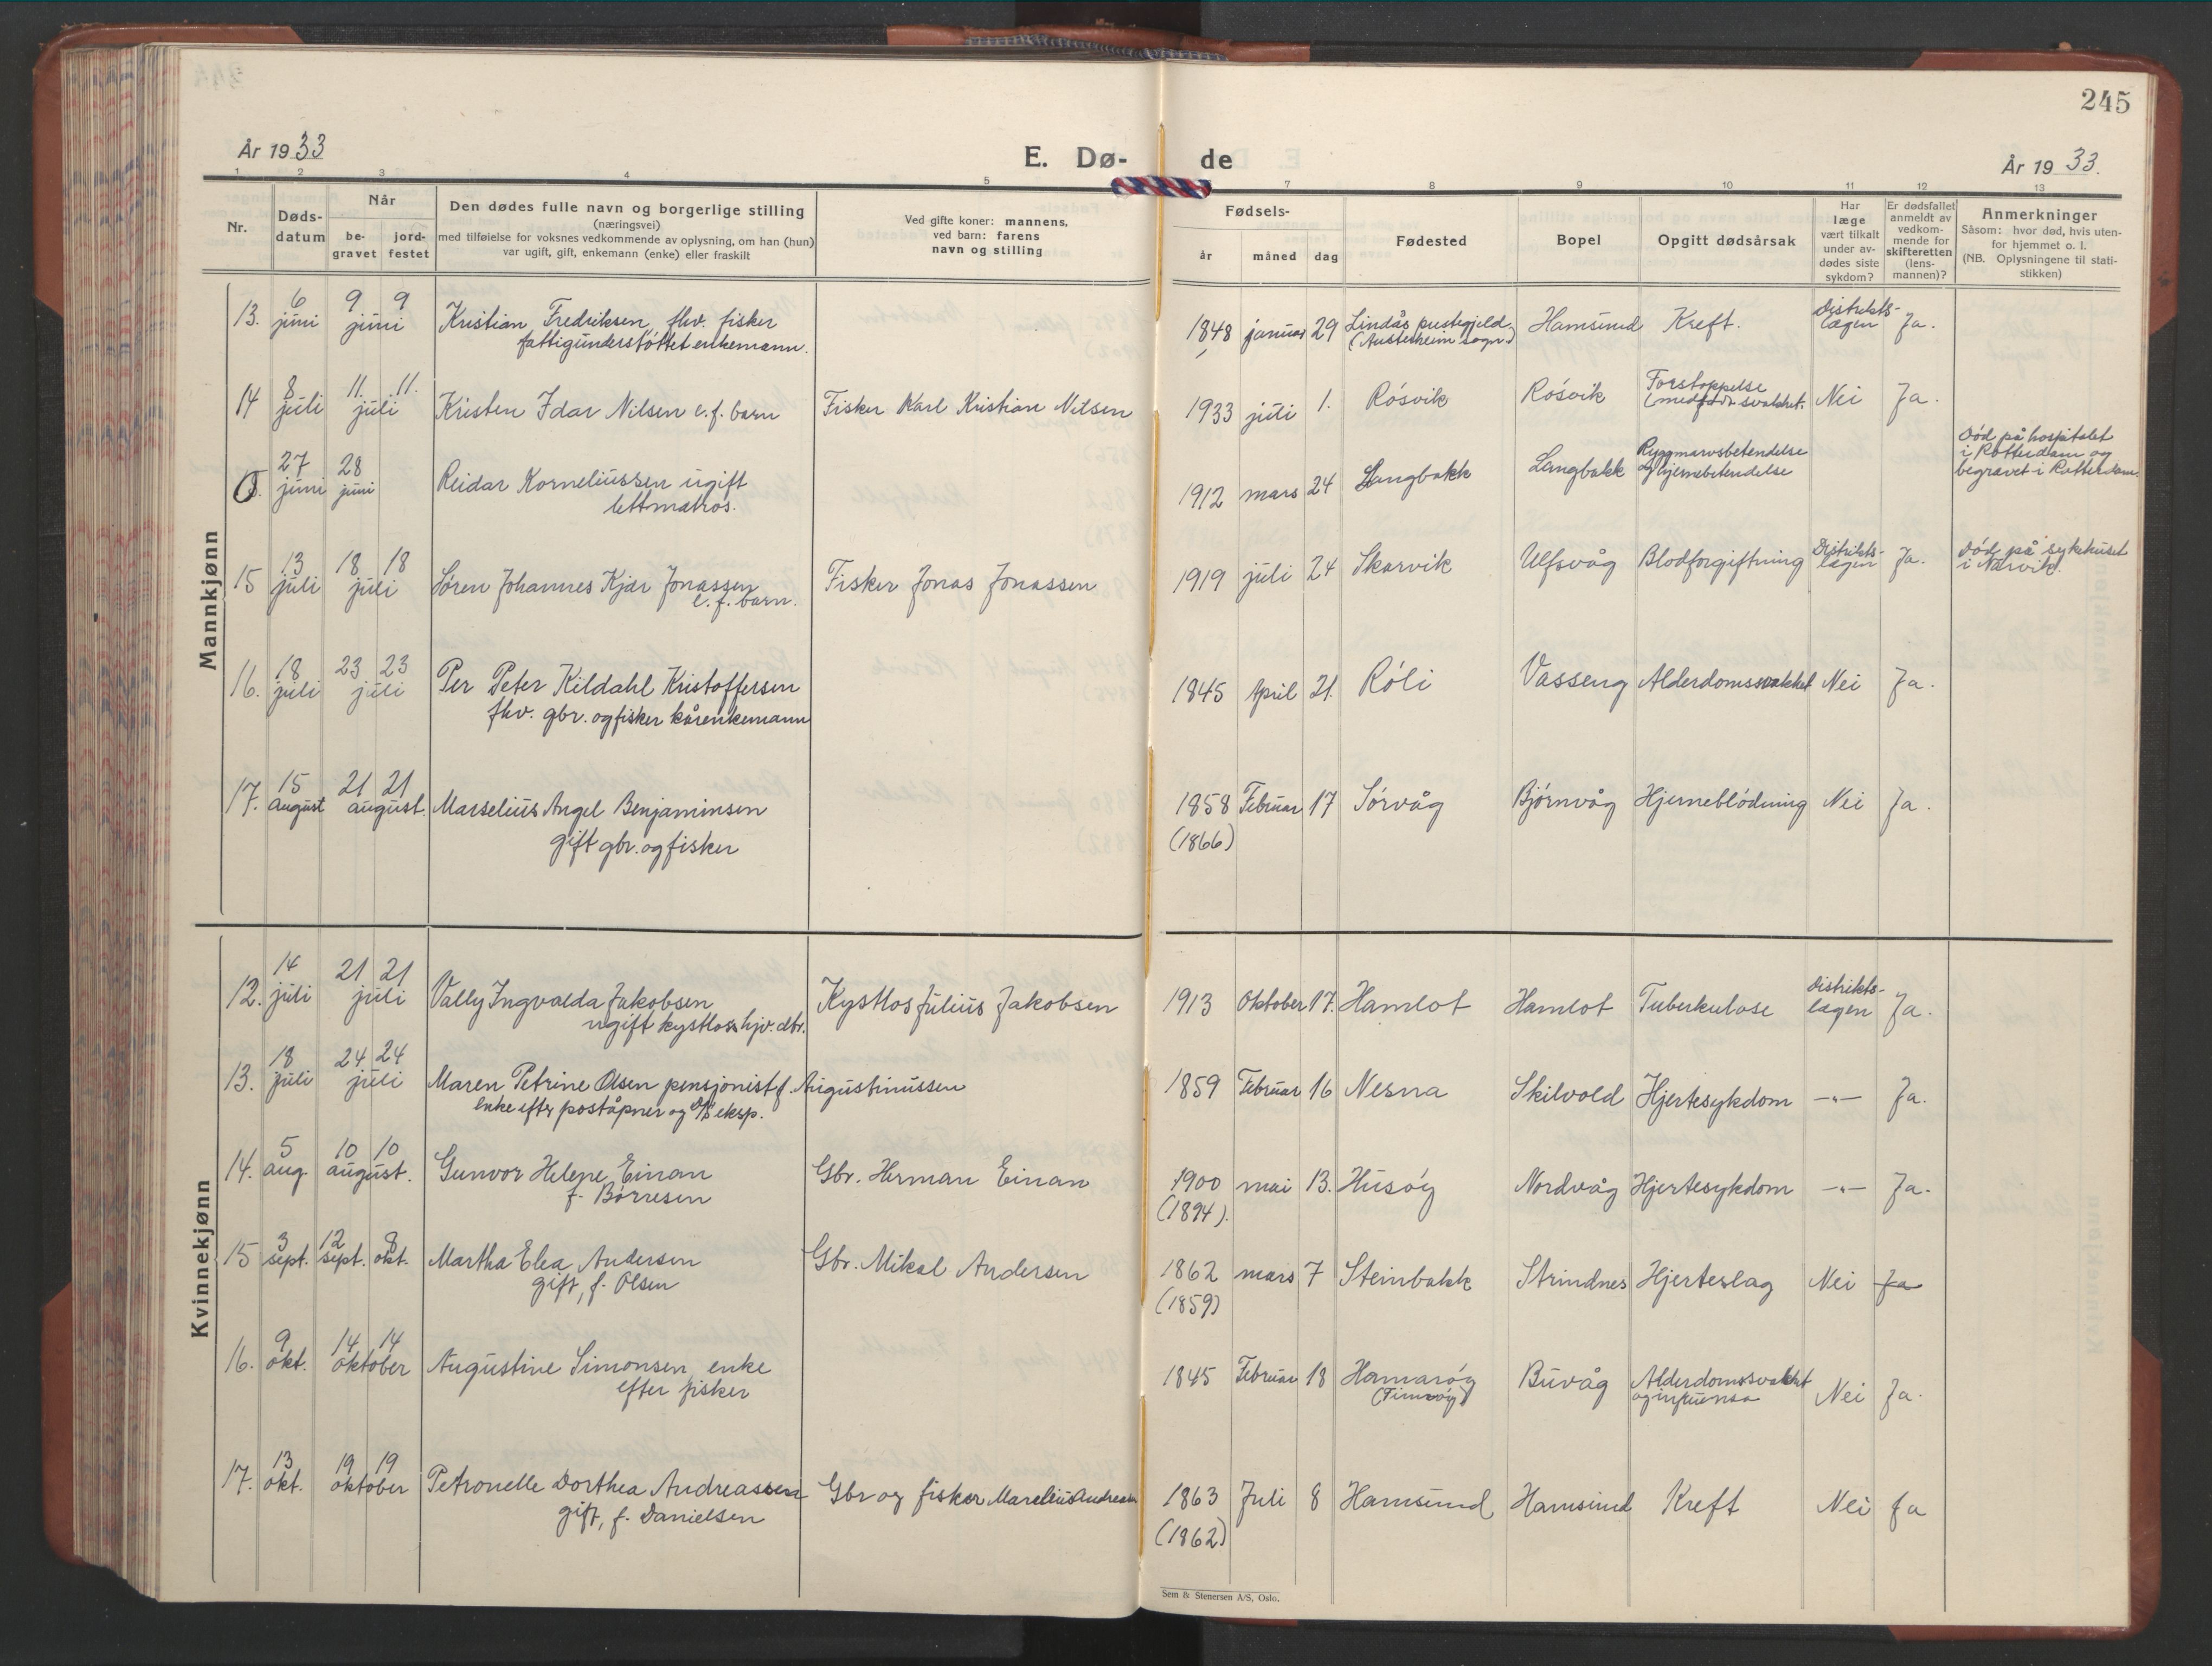 245
År 1933
E. Dø-de
År 1933.
1 2 3 4 5 7 8 9 10 11 12 13
Nr.
Døds-
datum
Når
be-
gravet
jord-
festet
Den dødes fulle navn og borgerlige stilling
(næringsvei)
med tilføielse for voksnes vedkommende av oplysning, om han (hun)
var ugift, gift, enkemann (enke) eller fraskilt
Ved gifte koner: mannens,
ved barn: farens
navn og stilling
Fødsels-
år måned dag
Fødested
Bopel
Opgitt dødsårsak
Har
læge
vært tilkalt
under av-
dødes siste
sykdom?
Er dødsfallet
anmeldt av
vedkom-
mende for
skifteretten
(lens-
mannen)?
Anmerkninger
Såsom: hvor død, hvis uten-
for hjemmet o. l.
(NB. Oplysningene til stati-
stikken)
Mannkjønn
13. 6 juni 9 9 juni Kristian Fredriksen, fhv. fisker
fattigunderstøttet enkemann.
1848 januar 29 Lindås prestegjeld
(Austerheim sogn) Hamsund Kreft. Distrikts-
lægen Ja.
14 8 juli 11. 11. juli Kristen Idar Nilsen e.f. barn Fisker Karl Kristian Nilsen 1933 juli 1. Røsvik Røsvik Forstoppelse
(medfødt svakhet. Nei Ja.
0. 27 juni 28 juni Reidar Korneliussen ugift
lettmatros.
1912 mars 24 Langbakk Langbakk Ryggmarvsbetendelse
og hjernebetendelse
Død på hospitalet
i Rotterdam og
begravet i Rotterdam.
15 13 juli 18 18 juli Søren Johannes Kjær Jonassen
e.f. barn. Fisker Jonas Jonassen 1919 juli 24 Skarvik Ulfsvåg Blodforgiftning Distrikts-
lægen Ja. Død på sykehuset
i Narvik.
16. 18 juli 23 23 juli Per Peter Kildahl Kristoffersen
fhv. gbr. og fisker kårenkemann
1845 April 21. Røli Vasseng Alderdomssvakhet Nei Ja.
17. 15 august 21 21 august. Marselius Angel Benjaminsen
gift gbr. og fisker
1858 Februar 17 Sørvåg Bjørnvåg Hjerneblødning Nei Ja.
(1866)
Kvinnekjønn
12. 14 juli 21 21 juli Vally Ingvalda Jakobsen
ugift kystlos hjv. dtr. Kystlos Julius Jakobsen 1913 Oktober 17. Hamlot Hamlot Tuberkulose Distrikts-
lægen Ja.
13. 18 juli 24 24 juli Maren Petrine Olsen pensjonist f. Augustinussen
enke efter poståpner og D/S eksp.
1859 Februar 16 Nesna Skilvold Hjertesykdom —"— Ja.
14. 5 aug. 10 10 august. Gunvor Helene Einan
f. Børresen Gbr. Herman Einan 1900 mai 13. Husøy Nordvåg Hjertesykdom —"— Ja.
(1894).
15 3 sept. 12 sept. 8 okt. Martha Elea Andersen
gift, f. Olsen Gbr. Mikal Andersen 1862 mars 7 Steinbakk Strindnes Hjerteslag Nei Ja
(1859)
16. 9 okt. 14 14 oktober Augustine Simonsen, enke
efter fisker
1845 Februar 18 Hamarøy Buvåg Alderdomssvakhet
og influensa Nei Ja.
17. 13 okt. 19 19 oktober Petronelle Dorthea Andreassen
gift, f. Danielsen Gbr og fisker Marelius Andreassen 1863 Juli 8 Hamsund Hamsund Kreft Nei Ja
(1862)
Sem & Stenersen A/S, Oslo.